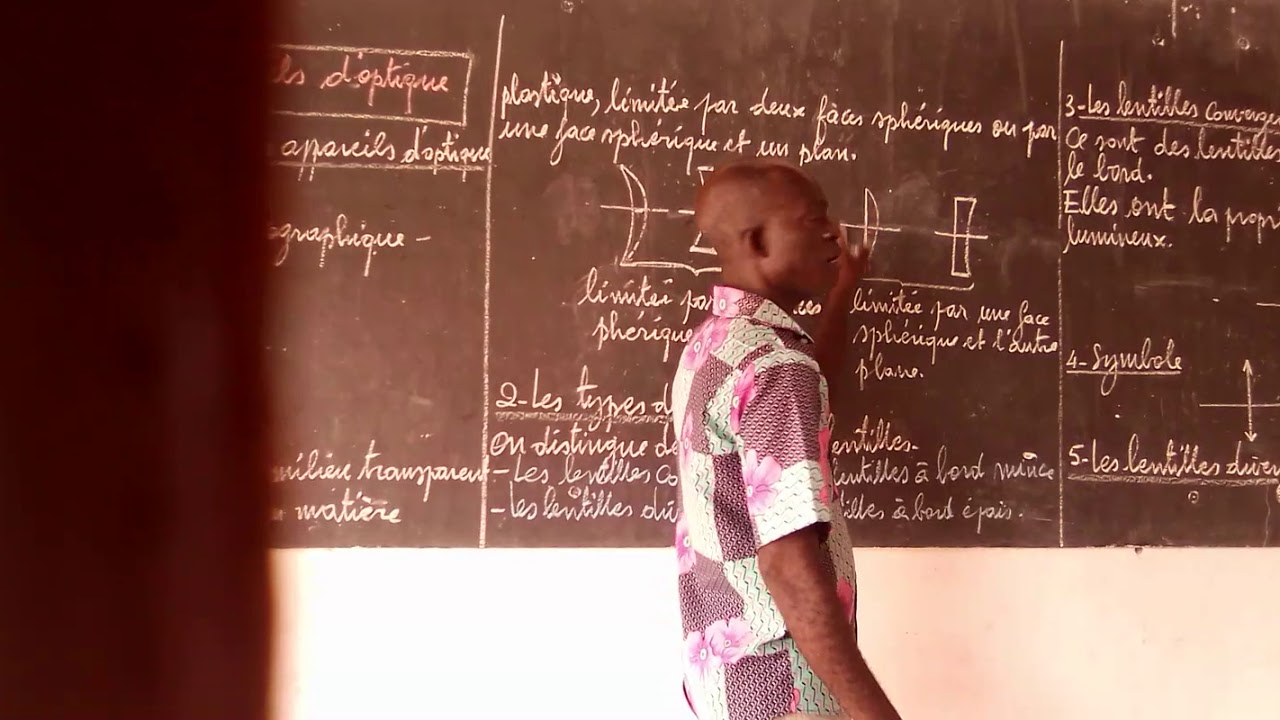 ls d'optique
appareils d'optique
ographique -
milieu transparent
matière
plastique, limitée par deux faces sphériques ou par
une face sphérique et un plan.
limitée par ces
sphérique
limitée par une face
sphérique et l'autre
plane.
2-Les types d
On distingue de entilles.
- Les lentilles co lentilles à bord mince
- Les lentilles di illes à bord épais.
3-Les lentilles converge
Ce sont des lentilles
le bord.
Elles ont la propr
lumineux.
4-Symbole
5-Les lentilles diver